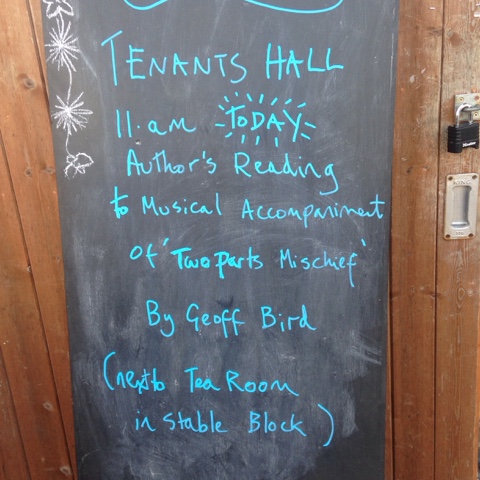 TENANTS HALL
11.am TODAY
Author's Reading
to Musical Accompaniment
of 'Two parts Mischief'
By Geoff Bird
(next to Tea Room
in Stable Block)